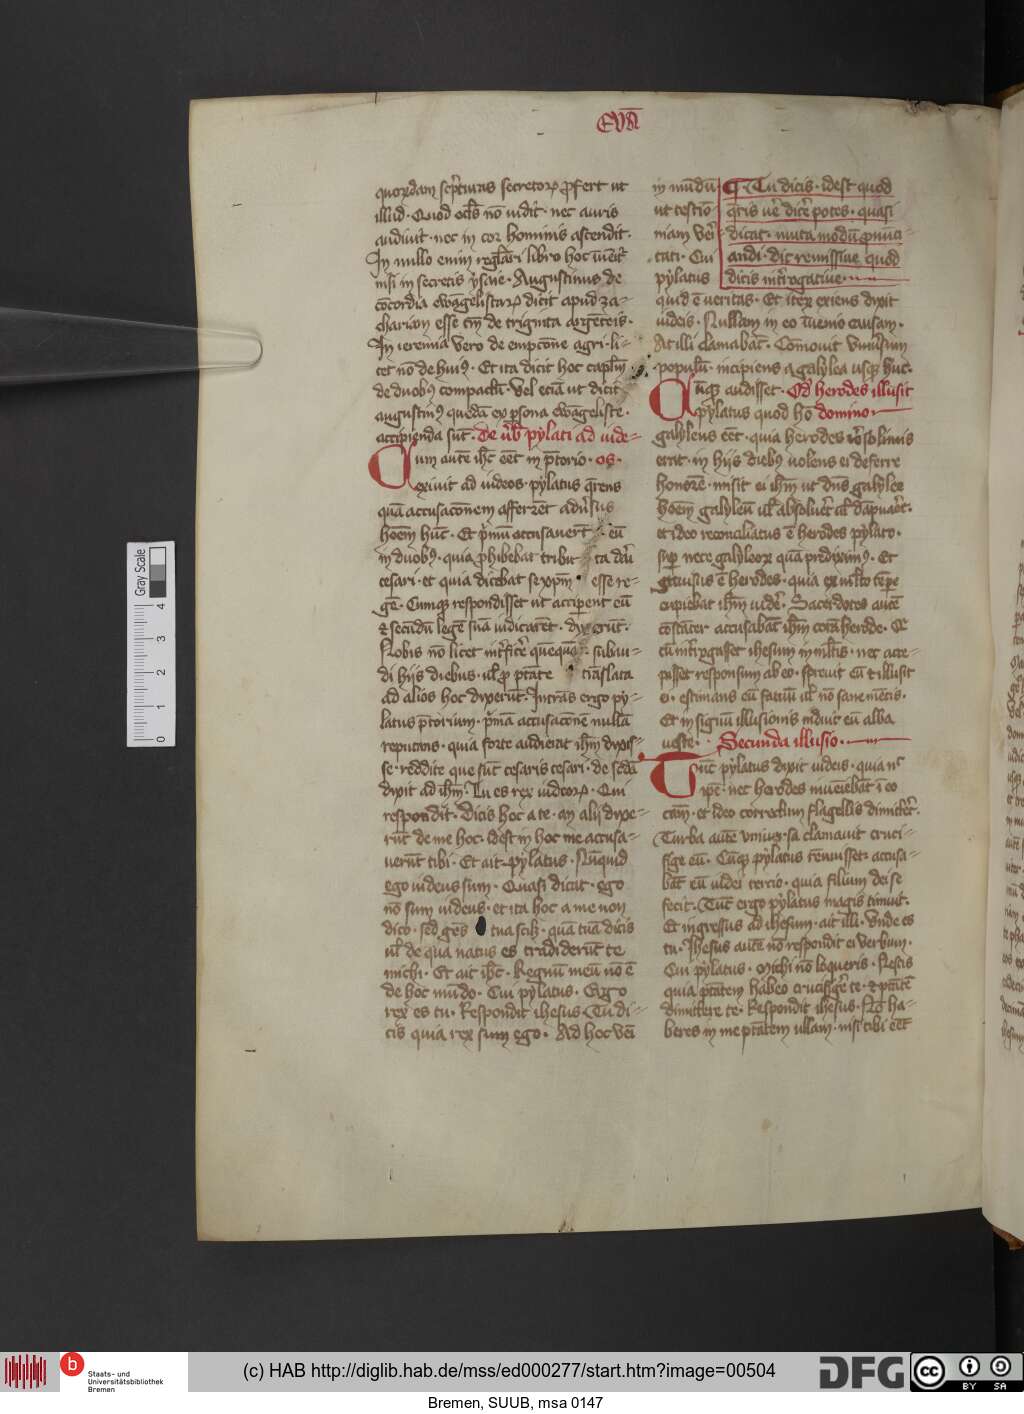 Evan
quorundam sepcturas secretorum profert ut
illud. Quod oculus non uidit. nec auris
audiuit. nec in cor hominis ascendit.
In nullo enim regulari libro hoc
nisi in secretis ysaie. Augustinus de
concordia ewangelistarum dicit apud za-
chariam esse tantum de triginta argenteis.
In ieremia vero de empcione agri. li-
cet non de huius. Et ita dicit hoc
de duobus compactum. Vel eciam ut dicit
augustinus quedam ex persona ewangeliste.
accipienda sunt. De pylati ad iude-
Cum autem ihc esset in pretorio. os.
exiuit ad iudeos pylatus querens
quam accusacionem afferrent aduersus
hominem hunc. Et primum accusauerunt eum
in duobus. quia prohibebat tributa dari
cesari. et quia dicebat se xpm esse re-
gem. Cumque respondisset ut acciperent eum
et secundum legem suam iudicarent. dixerunt.
Nobis non licet interficere quemquam. subau-
di hiis diebus. uel pro potestate translata
ad alios hoc dixerunt. Intrans ergo py-
latus pretorium. primam accusacionem nullam
reputans. quia forte audierat ihm dixis-
se. reddite que sunt cesaris cesari. de secunda
dixit ad ihm. Tu es rex iudeorum. Cui
respondit. Dicis hoc a te. an alii dixe-
runt de me hoc. Idest in hoc me accusa-
uerunt tibi. Et ait pylatus. Nunquid
ego iudeus sum. Quasi dicat. ego
non sum iudeus. et ita hoc a me non
dico. sed gens tua scilicet. quam tuam dicis
uel de qua natus es tradiderunt te
michi. Et ait ihc. Regnum meum non est
de hoc mundo. Cui pylatus. Ergo
rex es tu. Respondit ihesus Tu di-
cis quia rex sum ego. Ad hoc veni
in mundum
ut testimo-
nium veri-
tati. Cui
pylatus
Tu dicis. idest quod
queris vere dicere potes. quasi
dicat. muta modum pronunci-
andi. dic remissiue quod
dicis interrogatiue.
quid est ueritas. Et iterum exiens dixit
iudeis. Nullam in eo inuenio causam.
At illi clamabant. Comouit vniuersum
populum. incipiens a galylea usque huc.
Cumque audisset. Quod herodes illusit
pylatus quod homo domino.
galyleus esset. quia herodes ierosolimis
erat. in hiis diebus uolens ei deferre
honorem. misit ei ihm ut dominus galylee
hominem galyleum uel absolueret uel dampnaret.
et ideo reconciliatus est herodes pylato.
super nece galyleorum quam prediximus. Et
gauisus est herodes. quia ex multo tempore
cupiebat ihm uidere. Sacerdotes autem
constanter accusabant ihm coram herode. Et
cum interrogasset ihesum in multis. nec acce-
pisset responsum ab eo. spreuit eum et illusit
ei. estimans eum fatuum uel non sane mentis.
Et in signum illusionis induit eum alba
ueste. Secunda illusio.
Tunc pylatus dixit iudeis. quia nec
ipse. nec herodes inueniebat in eo
causam. et ideo correctum flagellis dimitteret.
Turba autem vniuersa clamauit cruci-
fige eum. Cumque pylatus renuisset. accusa-
bant eum iudei tercio. quia filium dei se
fecit. Tunc ergo pylatus magis timuit.
Et ingressus ad ihesum. ait illi. Vnde es
tu. Ihesus autem non respondit ei verbum.
Cui pylatus. Michi non loqueris. Nescis
quia potestatem habeo crucifigere te. et potestatem
dimittere te. Respondit ihesus. Non ha-
beres in me potestatem ullam. nisi tibi esset
Gray Scale
4
3
2
1
0
b
Staats- und
Universitätsbibliothek
Bremen
(c) HAB http://diglib.hab.de/mss/ed000277/start.htm?image=00504
DFG
cc
BY SA
Bremen, SUUB, msa 0147